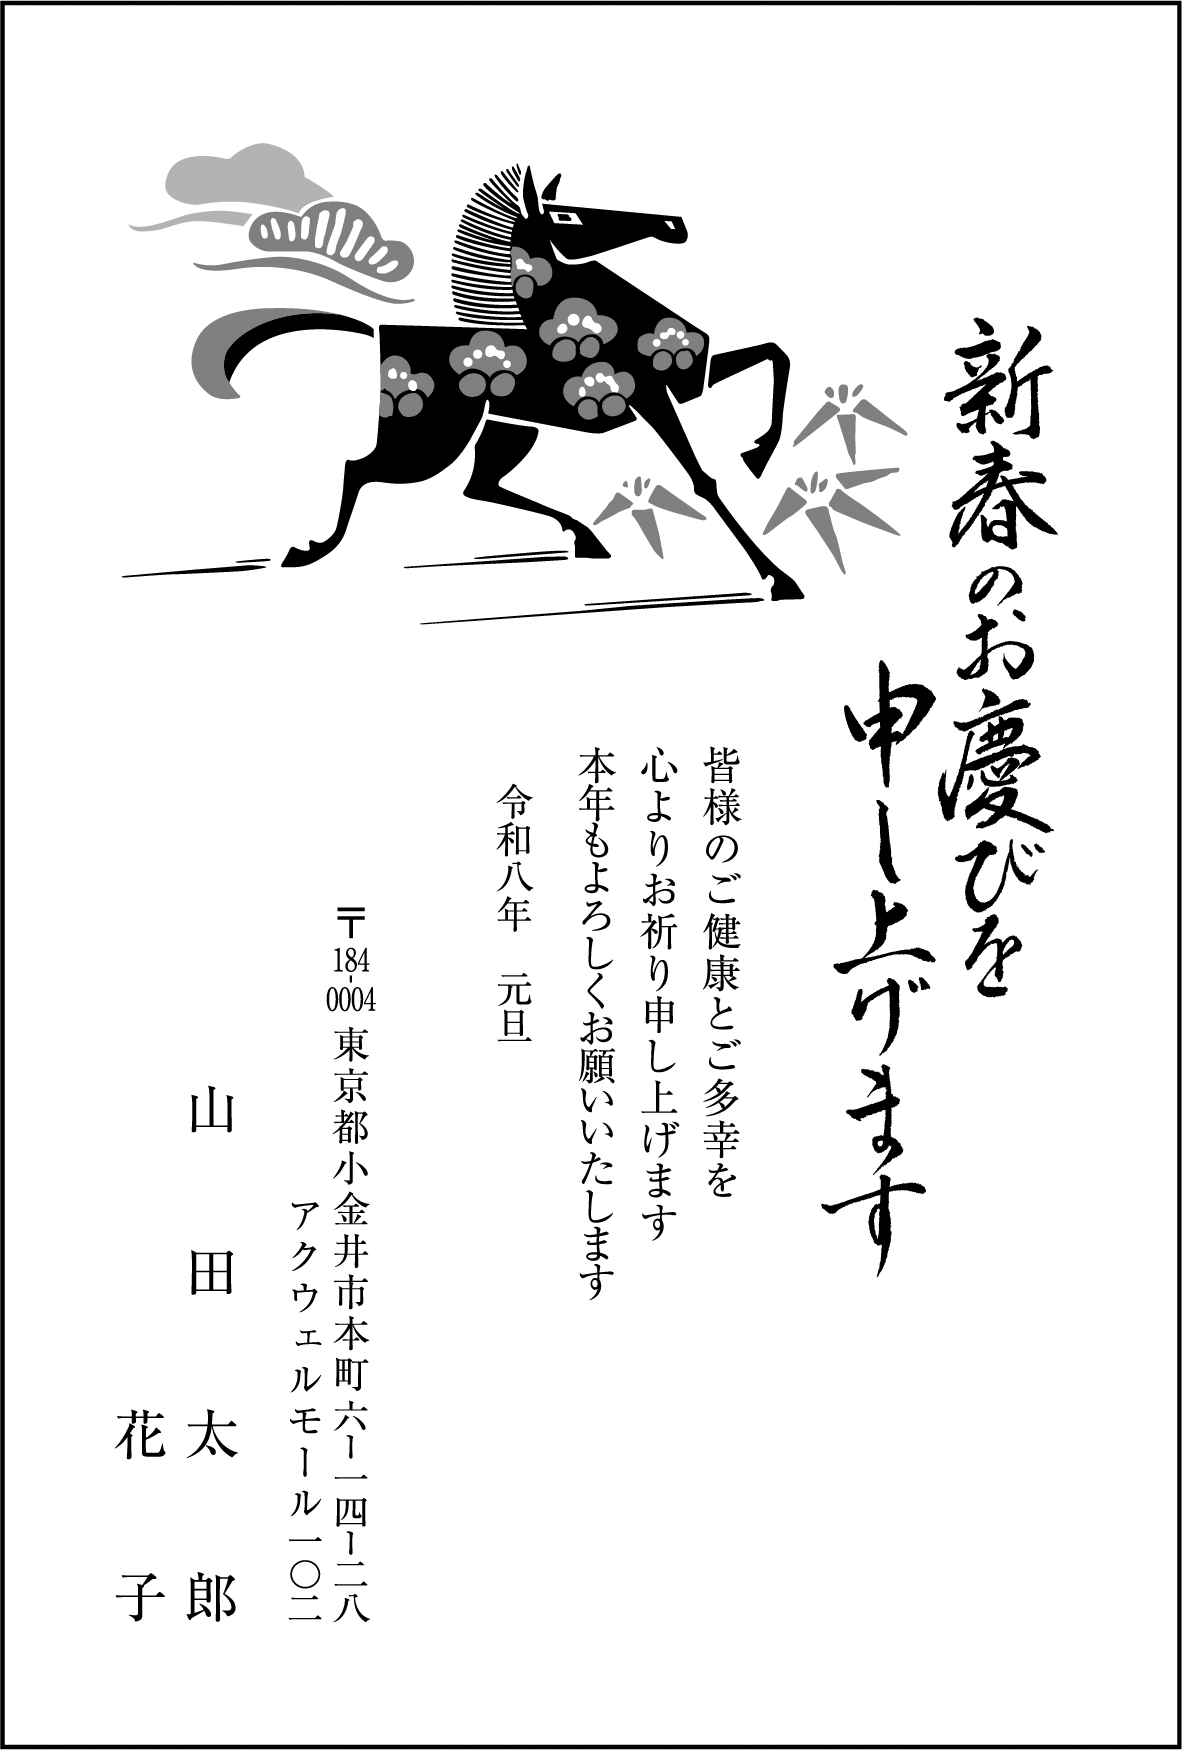 新春のお慶びを
申し上げます
皆様のご健康とご多幸を
心よりお祈り申し上げます
本年もよろしくお願いいたします
令和八年　元旦
〒184-0004 東京都小金井市本町六ー一四ー二八
アクウェルモール一〇二
山田太郎
花子